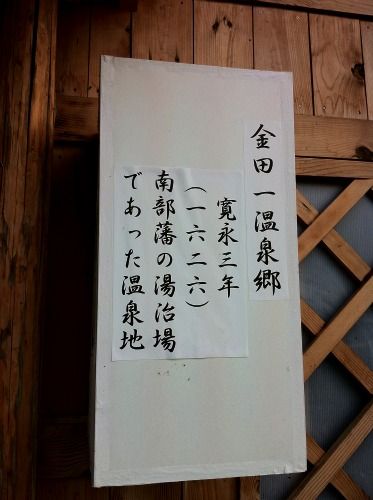 金田一温泉郷
寛永三年
（一六二六）
南部藩の湯治場
であった温泉地